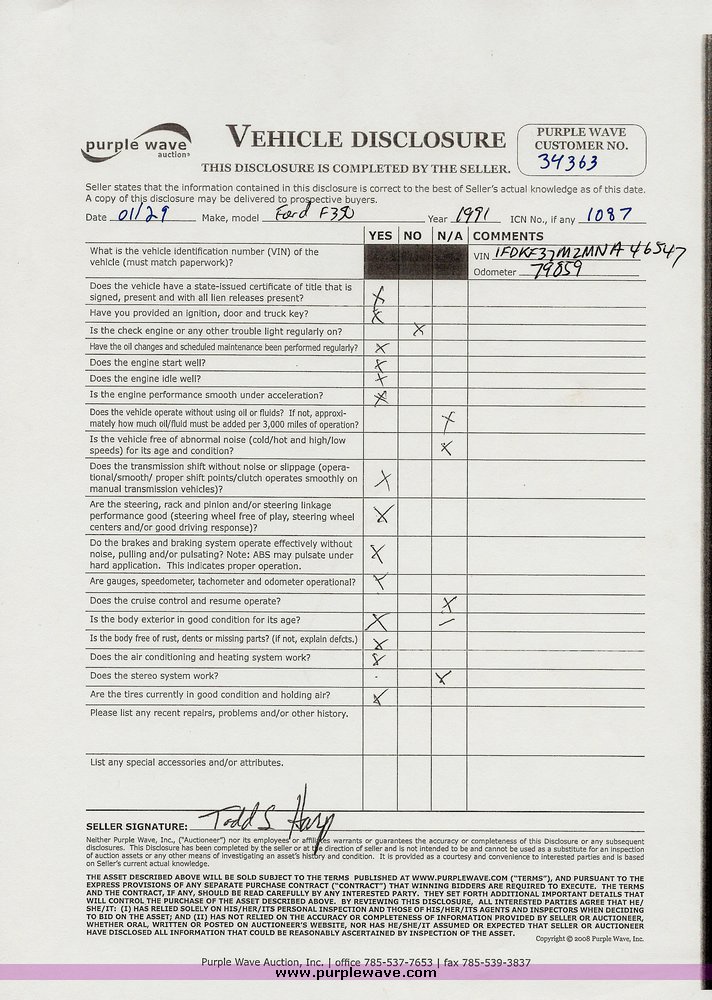 purple wave
auction®
VEHICLE DISCLOSURE
THIS DISCLOSURE IS COMPLETED BY THE SELLER.
PURPLE WAVE
CUSTOMER NO.
34363
Seller states that the information contained in this disclosure is correct to the best of Seller's actual knowledge as of this date.
A copy of this disclosure may be delivered to prospective buyers.
Date 01/29 Make, model Ford F350 Year 1991 ICN No., if any 1087
YES NO N/A COMMENTS
What is the vehicle identification number (VIN) of the
vehicle (must match paperwork)?
VIN 1FDKF37M2MNA46547
Odometer 79859
Does the vehicle have a state-issued certificate of title that is
signed, present and with all lien releases present? X
Have you provided an ignition, door and truck key? X
Is the check engine or any other trouble light regularly on? X
Have the oil changes and scheduled maintenance been performed regularly? X
Does the engine start well? X
Does the engine idle well? X
Is the engine performance smooth under acceleration? X
Does the vehicle operate without using oil or fluids? If not, approxi-
mately how much oil/fluid must be added per 3,000 miles of operation? X
Is the vehicle free of abnormal noise (cold/hot and high/low
speeds) for its age and condition? X
Does the transmission shift without noise or slippage (opera-
tional/smooth/ proper shift points/clutch operates smoothly on
manual transmission vehicles)? X
Are the steering, rack and pinion and/or steering linkage
performance good (steering wheel free of play, steering wheel
centers and/or good driving response)? X
Do the brakes and braking system operate effectively without
noise, pulling and/or pulsating? Note: ABS may pulsate under
hard application. This indicates proper operation. X
Are gauges, speedometer, tachometer and odometer operational? X
Does the cruise control and resume operate? X
Is the body exterior in good condition for its age? X –
Is the body free of rust, dents or missing parts? (if not, explain defcts.) X
Does the air conditioning and heating system work? X
Does the stereo system work? X
Are the tires currently in good condition and holding air? X
Please list any recent repairs, problems and/or other history.
List any special accessories and/or attributes.
SELLER SIGNATURE: Todd S Harp
Neither Purple Wave, Inc., ("Auctioneer") nor its employees or affiliates warrants or guarantees the accuracy or completeness of this Disclosure or any subsequent
disclosures. This Disclosure has been completed by the seller or at the direction of seller and is not intended to be and cannot be used as a substitute for an inspection
of auction assets or any other means of investigating an asset's history and condition. It is provided as a courtesy and convenience to interested parties and is based
on Seller's current actual knowledge.
THE ASSET DESCRIBED ABOVE WILL BE SOLD SUBJECT TO THE TERMS PUBLISHED AT WWW.PURPLEWAVE.COM ("TERMS"), AND PURSUANT TO THE
EXPRESS PROVISIONS OF ANY SEPARATE PURCHASE CONTRACT ("CONTRACT") THAT WINNING BIDDERS ARE REQUIRED TO EXECUTE. THE TERMS
AND THE CONTRACT, IF ANY, SHOULD BE READ CAREFULLY BY ANY INTERESTED PARTY. THEY SET FORTH ADDITIONAL IMPORTANT DETAILS THAT
WILL CONTROL THE PURCHASE OF THE ASSET DESCRIBED ABOVE. BY REVIEWING THIS DISCLOSURE, ALL INTERESTED PARTIES AGREE THAT HE/
SHE/IT: (I) HAS RELIED SOLELY ON HIS/HER/ITS PERSONAL INSPECTION AND THOSE OF HIS/HER/ITS AGENTS AND INSPECTORS WHEN DECIDING
TO BID ON THE ASSET; AND (II) HAS NOT RELIED ON THE ACCURACY OR COMPLETENESS OF INFORMATION PROVIDED BY SELLER OR AUCTIONEER,
WHETHER ORAL, WRITTEN OR POSTED ON AUCTIONEER'S WEBSITE, NOR HAS HE/SHE/IT ASSUMED OR EXPECTED THAT SELLER OR AUCTIONEER
HAVE DISCLOSED ALL INFORMATION THAT COULD BE REASONABLY ASCERTAINED BY INSPECTION OF THE ASSET.
Copyright © 2008 Purple Wave, Inc.
Purple Wave Auction, Inc. | office 785-537-7653 | fax 785-539-3837
www.purplewave.com